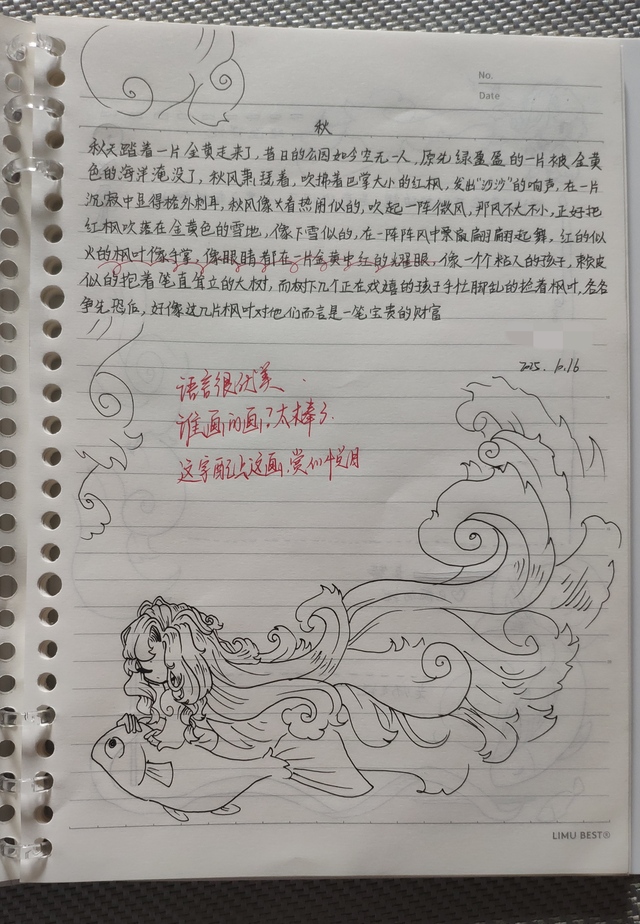 No.
Date
秋
秋天踏着一片金黄走来了,昔日的校园如今空无一人,原先绿盈盈的一片被金黄
色的海洋淹没了,秋风萧瑟着,吹拂着巴掌大小的红枫,发出“沙沙”的响声,在一片
沉寂中显得格外刺耳,秋风像凑着热闹似的,吹起一阵微风,那风不大不小,正好把
红枫吹落在金黄色的雪地,像下雪似的,在一阵阵风中聚散翩翩起舞,红的似
火的枫叶像手掌,像眼睛都在一片金黄中红的耀眼,像一个粘人的孩子,赖皮
似的抱着笔直耸立的大树,而树下几个正在戏嬉的孩子手忙脚乱的捡着枫叶,各各
争先恐后,好像这几片枫叶对他们而言是一笔宝贵的财富
2025.10.16
语言很优美.
谁画的画?太棒了.
这字配上这画,赏心悦目
LIMU BEST®